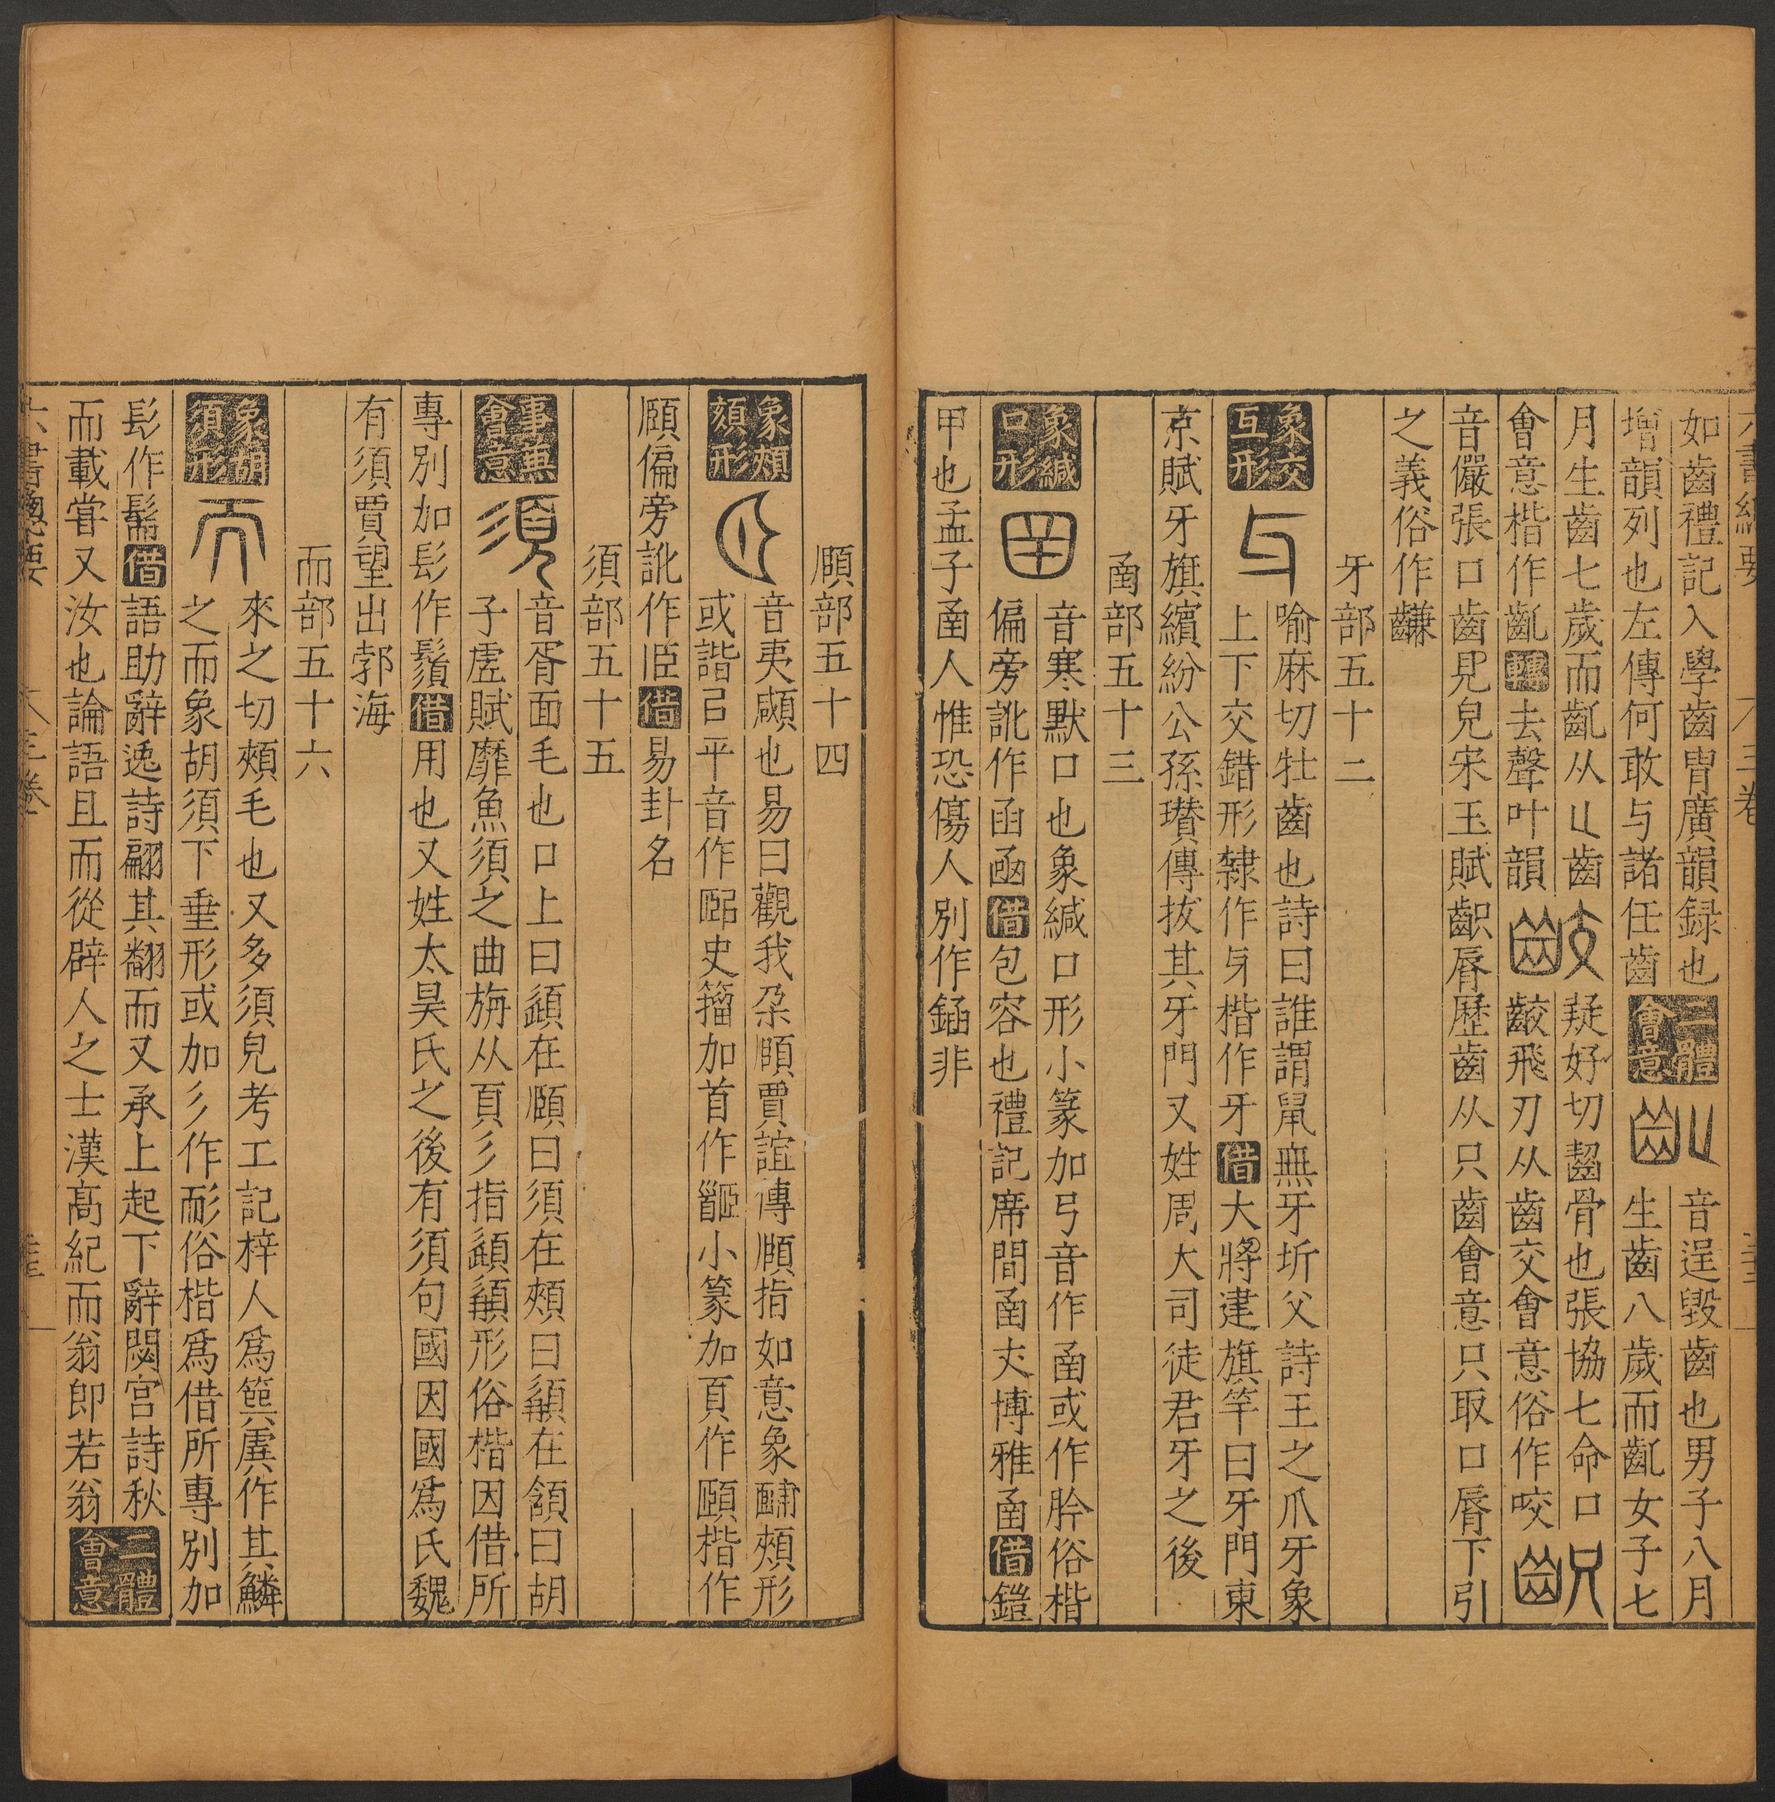 如齒禮記入學齒冑廣韻録也
增韻列也左傳何敢与諸任齒
二體會意
音逞毀齒也男子八月
生齒八歲而齓女子七
月生齒七歲而齓从匕齒
疑好切齧骨也張協七命口
會意楷作齓轉去聲叶韻
齩飛刃从齒交會意俗作咬
音儼張口齒見皃宋玉賦齞脣歷齒从只齒會意只取口脣下引
之義俗作㘋
牙部五十二
象交互形
喻麻切牡齒也詩曰誰謂鼠無牙圻父詩王之爪牙象
上下交錯形隸作牙楷作牙借大將建旗竿曰牙門東
京賦牙旗繽紛公孫瓚傳拔其牙門又姓周大司徒君牙之後
圅部五十三
象緘口形
音寒默口也象緘口形小篆加弓音作圅或作肣俗楷
偏旁訛作函凾借包容也禮記席間圅丈博雅圅借鎧
甲也孟子圅人惟恐傷人別作𨥙非
頤部五十四
象頰頦形
音夷頤也易曰觀我朶頤賈誼傳頤指如意象酺頰形
或諧㠯平音作𦣞史籀加首作𩠡小篆加頁作頤楷作
頤偏旁訛作𦣝借易卦名
須部五十五
事兼會意
音胥面毛也口上曰頾在頤曰須在頰曰髥在頷曰胡
子虛賦靡魚須之曲旃从頁彡指頾髥形俗楷因借所
專別加髟作鬚借用也又姓太昊氏之後有須句國因國爲氏魏
有須賈望出郭海
而部五十六
象胡須形
來之切頰毛也又多須皃考工記梓人爲筍虡作其鱗
之而象胡須下垂形或加彡作耏俗楷爲借所專別加
髟作髵借語助辭逸詩翩其翻而又承上起下辭閟宮詩秋
而載甞又汝也論語且而從辟人之士漢高紀而翁即若翁
二體會意
六書總要
三卷